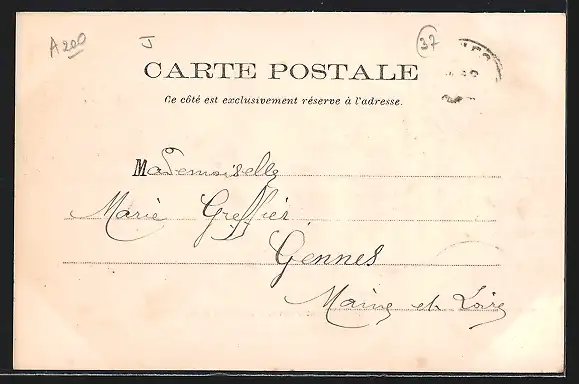 A200
J
37
CARTE POSTALE
Ce côté est exclusivement réservé à l'adresse.
Mademoiselle
Marie Greffier
Gennes
Maine et Loire